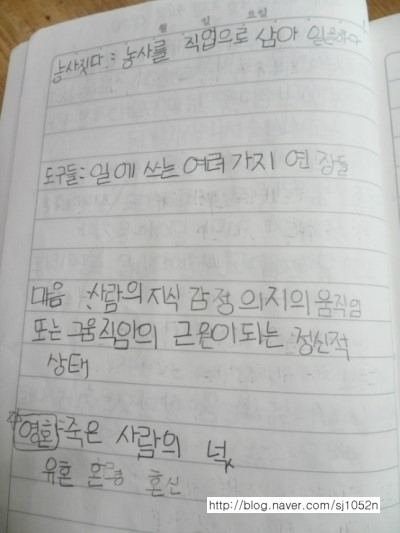 월 일 요일
농사짓다:농사를 직업으로 삼아 일은하다
도구들:일에 쓰는 여러 가지 연장들
마음 사람의 지식 감정 의지의 움직임
또는 그움직임의 근원이되는 정신적
상태
영혼-죽은 사람의 넋
유혼 혼령 혼신
http://blog.naver.com/sj1052n